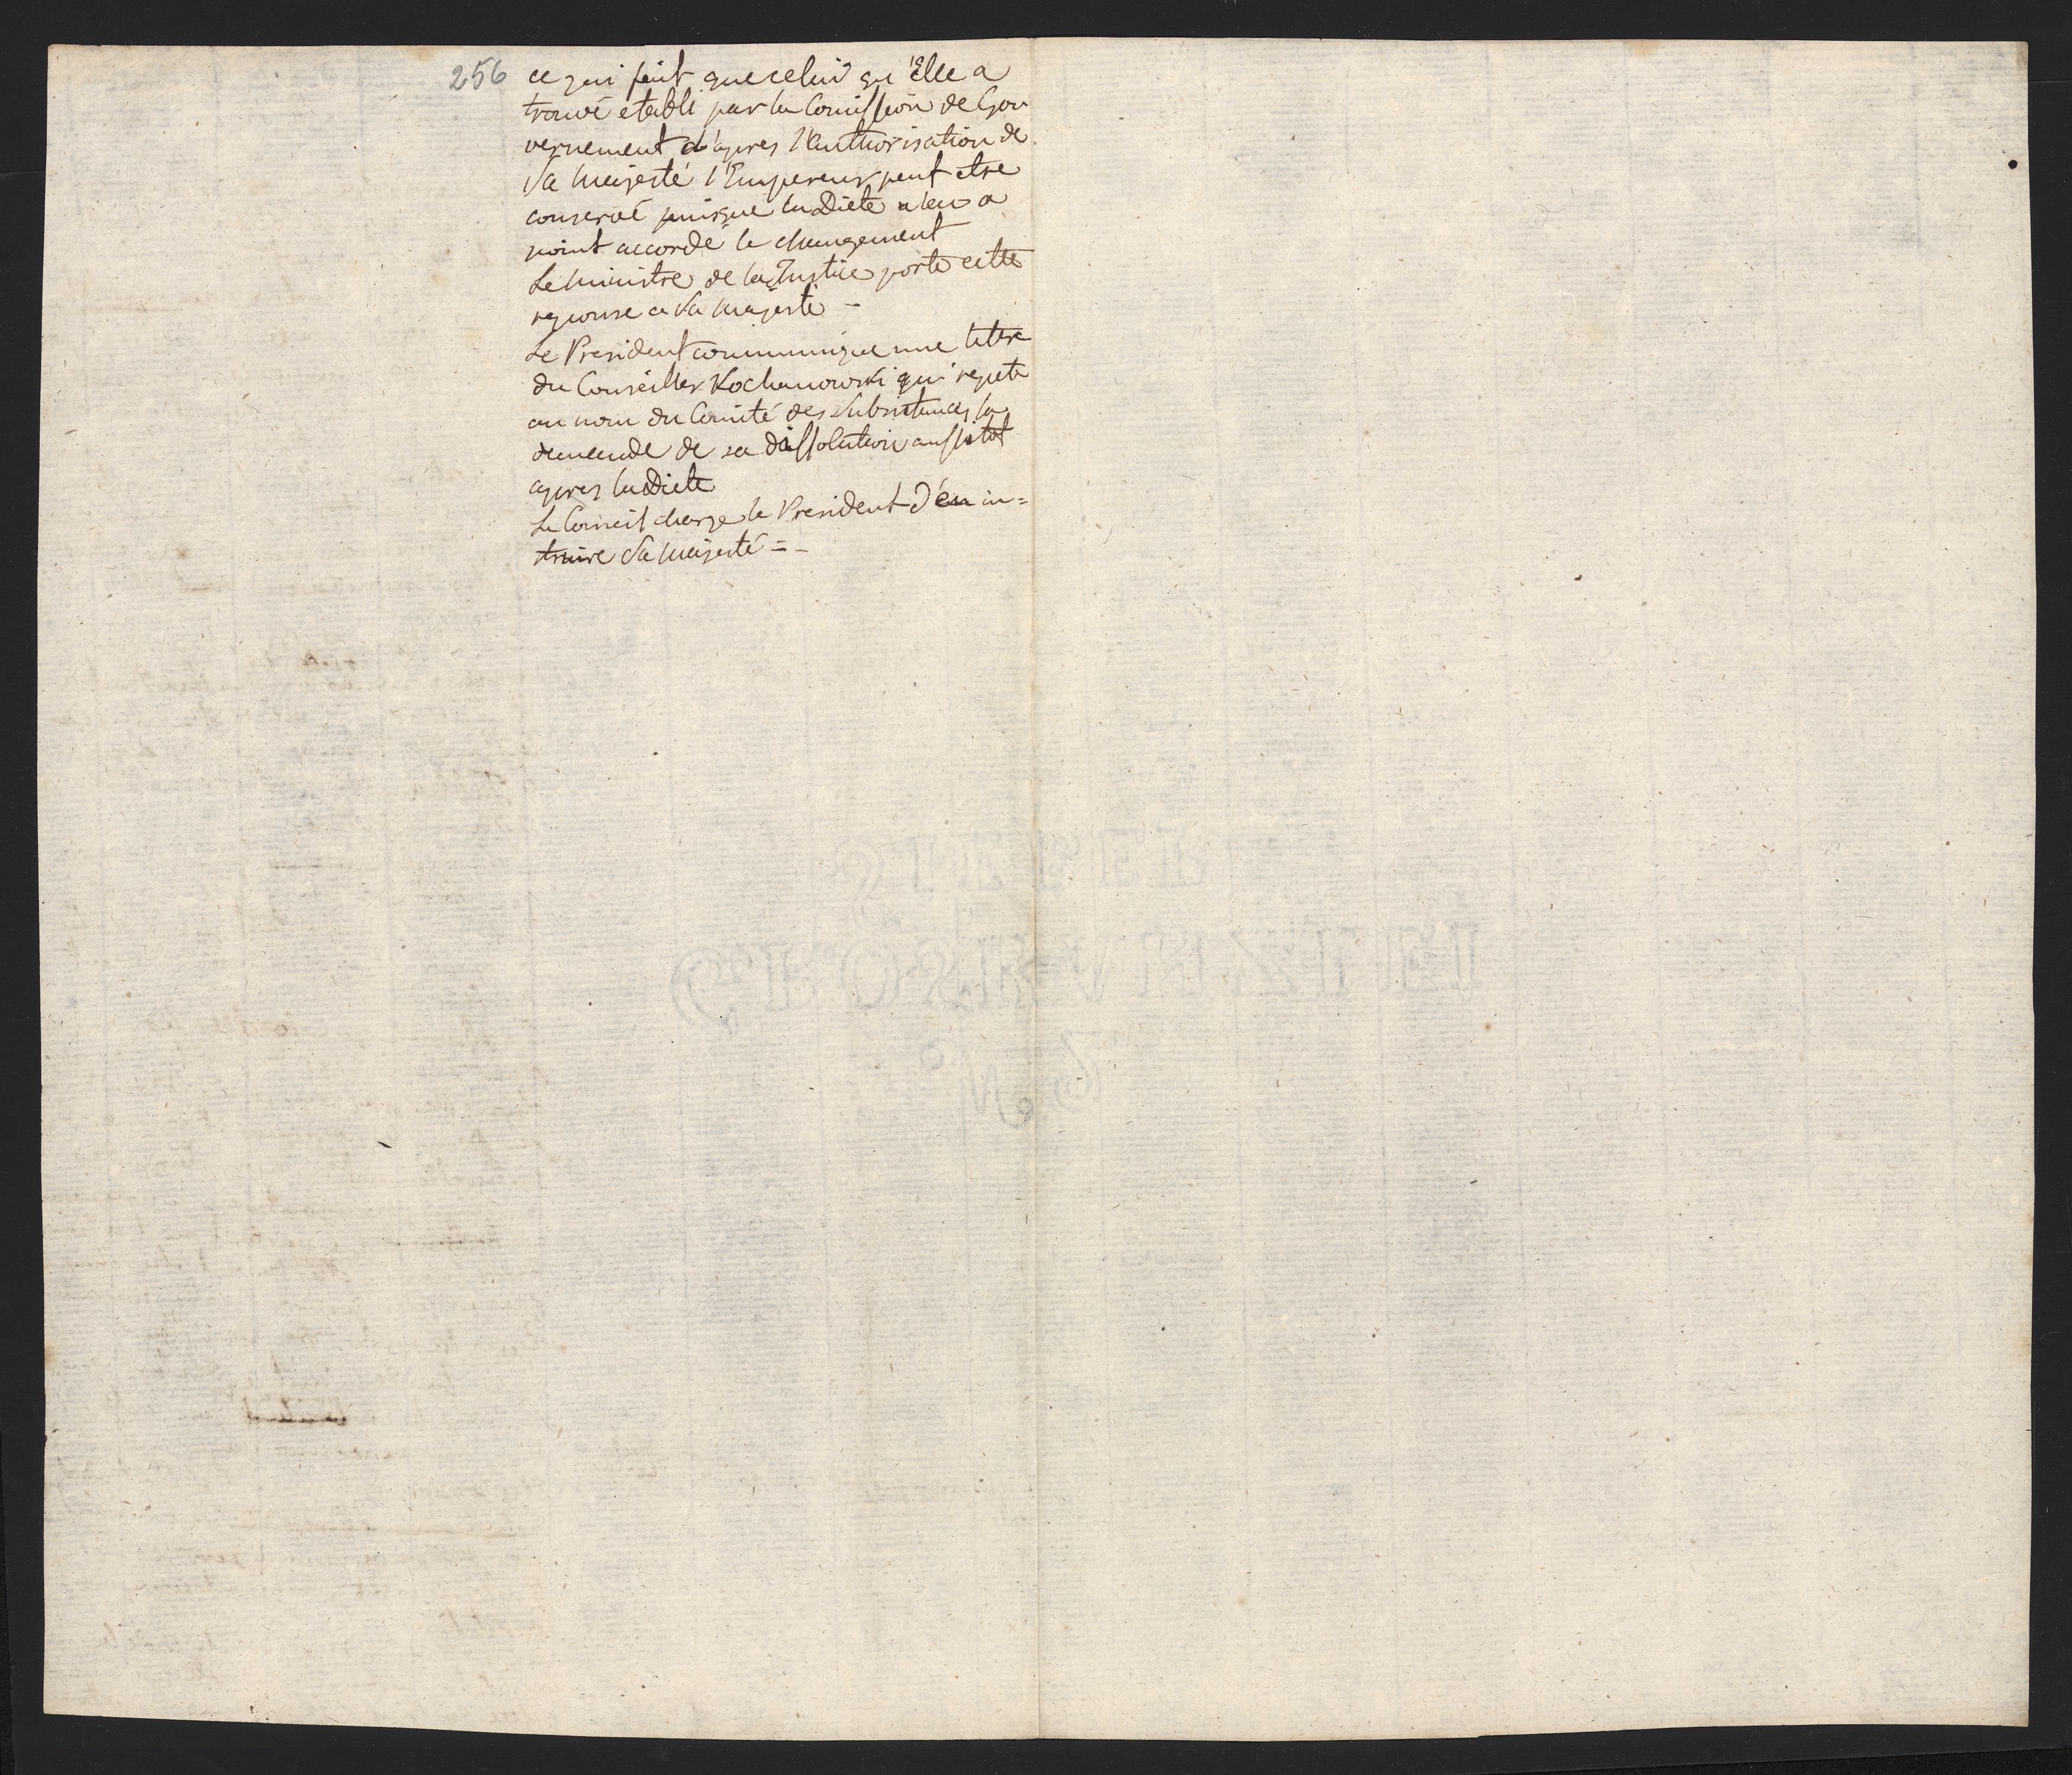 256 ce qui fait que celui qu'Elle a
trouvé etabli par la Comission de Gou
vernement d'apres l'Authorisation de
Sa Majesté l'Empereur peut etre
conservé puisque la Diete n'en a
point accordé le changement
Le Ministre de la Justice porte cette
reponse a Sa Majesté –
Le President communique une lettre
du Conseiller Kochanowski qui repete
au nom du Comité des Subsistances la
demande de sa dissolution aussitot
apres la Diete
Le Conseil charge le President d'en in=
struire Sa Majesté = –